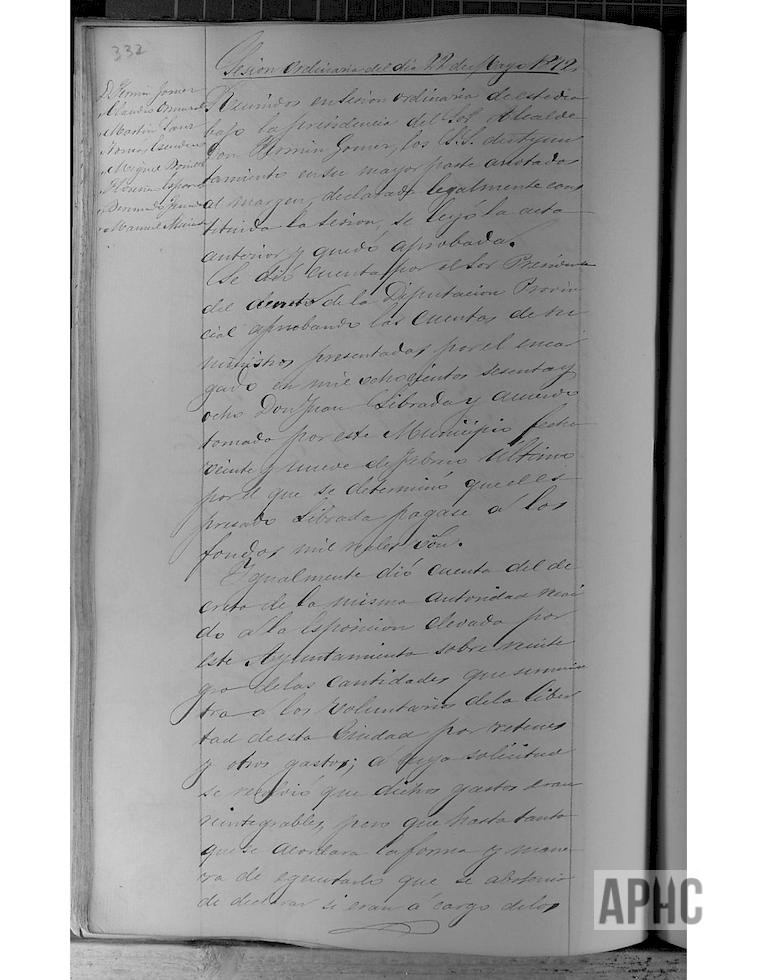 332
Sesion ordinaria del dia 22 de Mayo 1872.
D. Fermin Gomez
Claudio
Martin Sanz
Tomas Escudero
Miguel
Bernardo
Manuel
Reunidos en sesion ordinaria de este dia
bajo la presidencia del Sor Alcalde
Don Fermin Gomez, los S.S. de Ayun
tamiento en su mayor parte anotados
al margen, declarada legalmente cons
tituida la sesion, se leyó la acta
anterior y quedó aprobada.
Se dió cuenta por el Sor Presidente
del decreto de la Diputacion Provin
cial aprobando las cuentas de su
ministros presentadas por el encar
gado en mil ochocientos sesenta y
ocho Don Juan Librada y acuerdo
tomado por este Municipio fecha
veinte y nueve de febrero último
por el que se determinó que el es
presado Librada pagase á los
fondos mil reales von.
Ygualmente dió cuenta del de
creto de la misma autoridad recai
do á la esposicion elevada por
este Ayuntamiento sobre reinte
gro de las cantidades que suminis
tra á los Voluntarios de la liber
tad de esta Ciudad por retenes
y otros gastos; á cuya solicitud
se resolvió que dichos gastos eran
reintegrables, pero que hasta tanto
que se acordara la forma y mane
ra de egecutarlo que se abstenia
de declarar si eran á cargo de los
APHC